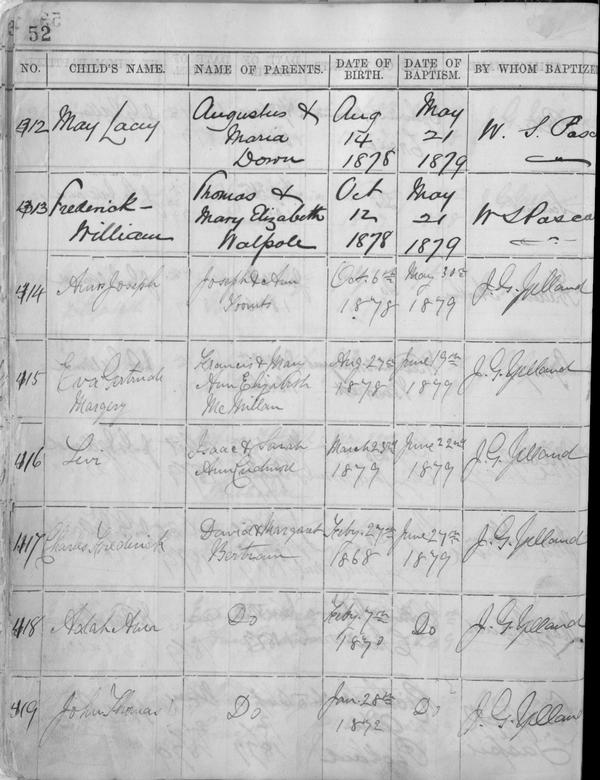 52
NO. CHILD'S NAME. NAME OF PARENTS. DATE OF BIRTH. DATE OF BAPTISM. BY WHOM BAPTIZE
412 May Lacey Augustus & Maria Down Aug 14 1878 May 21 1879 W. S. Pasc
413 Frederick William Thomas & Mary Elizabeth Walpole Oct 12 1878 May 21 1879 W S Pasca
414 Joseph Joseph & Ann Oct. 6th 1878 May 30th 1879 J. G. Yelland
415 Eva Gertrude Margery Francis & Mary Ann Elizabeth McMillan Aug. 27th 1878 June 19th 1879 J. G. Yelland
416 Levi Isaac & Sarah Ann March 23rd 1879 June 22nd 1879 J. G. Yelland
417 Charles Frederick David & Margaret Bertram Feby. 27th 1868 June 27th 1879 J. G. Yelland
418 Do Feby. 7th 1870 Do J. G. Yelland
419 John Thomas Do Jan. 28th 1872 Do J. G. Yellan